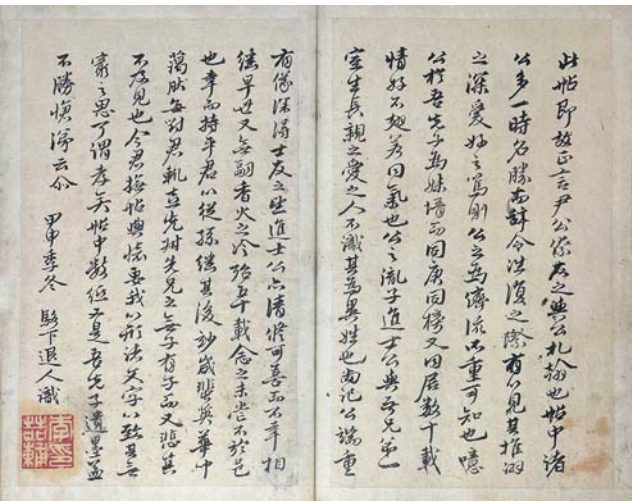 此帖即故正言尹公家君之與公札翰也帖中諸
公多一時名勝而辭令往復之際有以見其推詡
之深愛好之篤則公之為儕流所重可知也噫
公於吾先子為妹壻而同庚同榜又同居數十載
情好不翅若同氣也公之胤子進士公與吾兄弟一
室生長親之愛之人不識其為異姓也尚記公端重
有儀深得士友之望進士公亦清修可喜而不幸相
繼早世又無嗣香火之冷殆五十載念之未嘗不於邑
也幸而持平君以從孫繼其後妙歲蜚英華冲
藹然每對君輒喜先姑先兄之無子有子而又悲其
不及見也今君撫帖興懷要我以形諸文字以致其無
窮之思可謂孝矣帖中數紙又是吾先子遺墨益
不勝愴涕云尒 甲申季冬 駱下退人識
李
喆輔